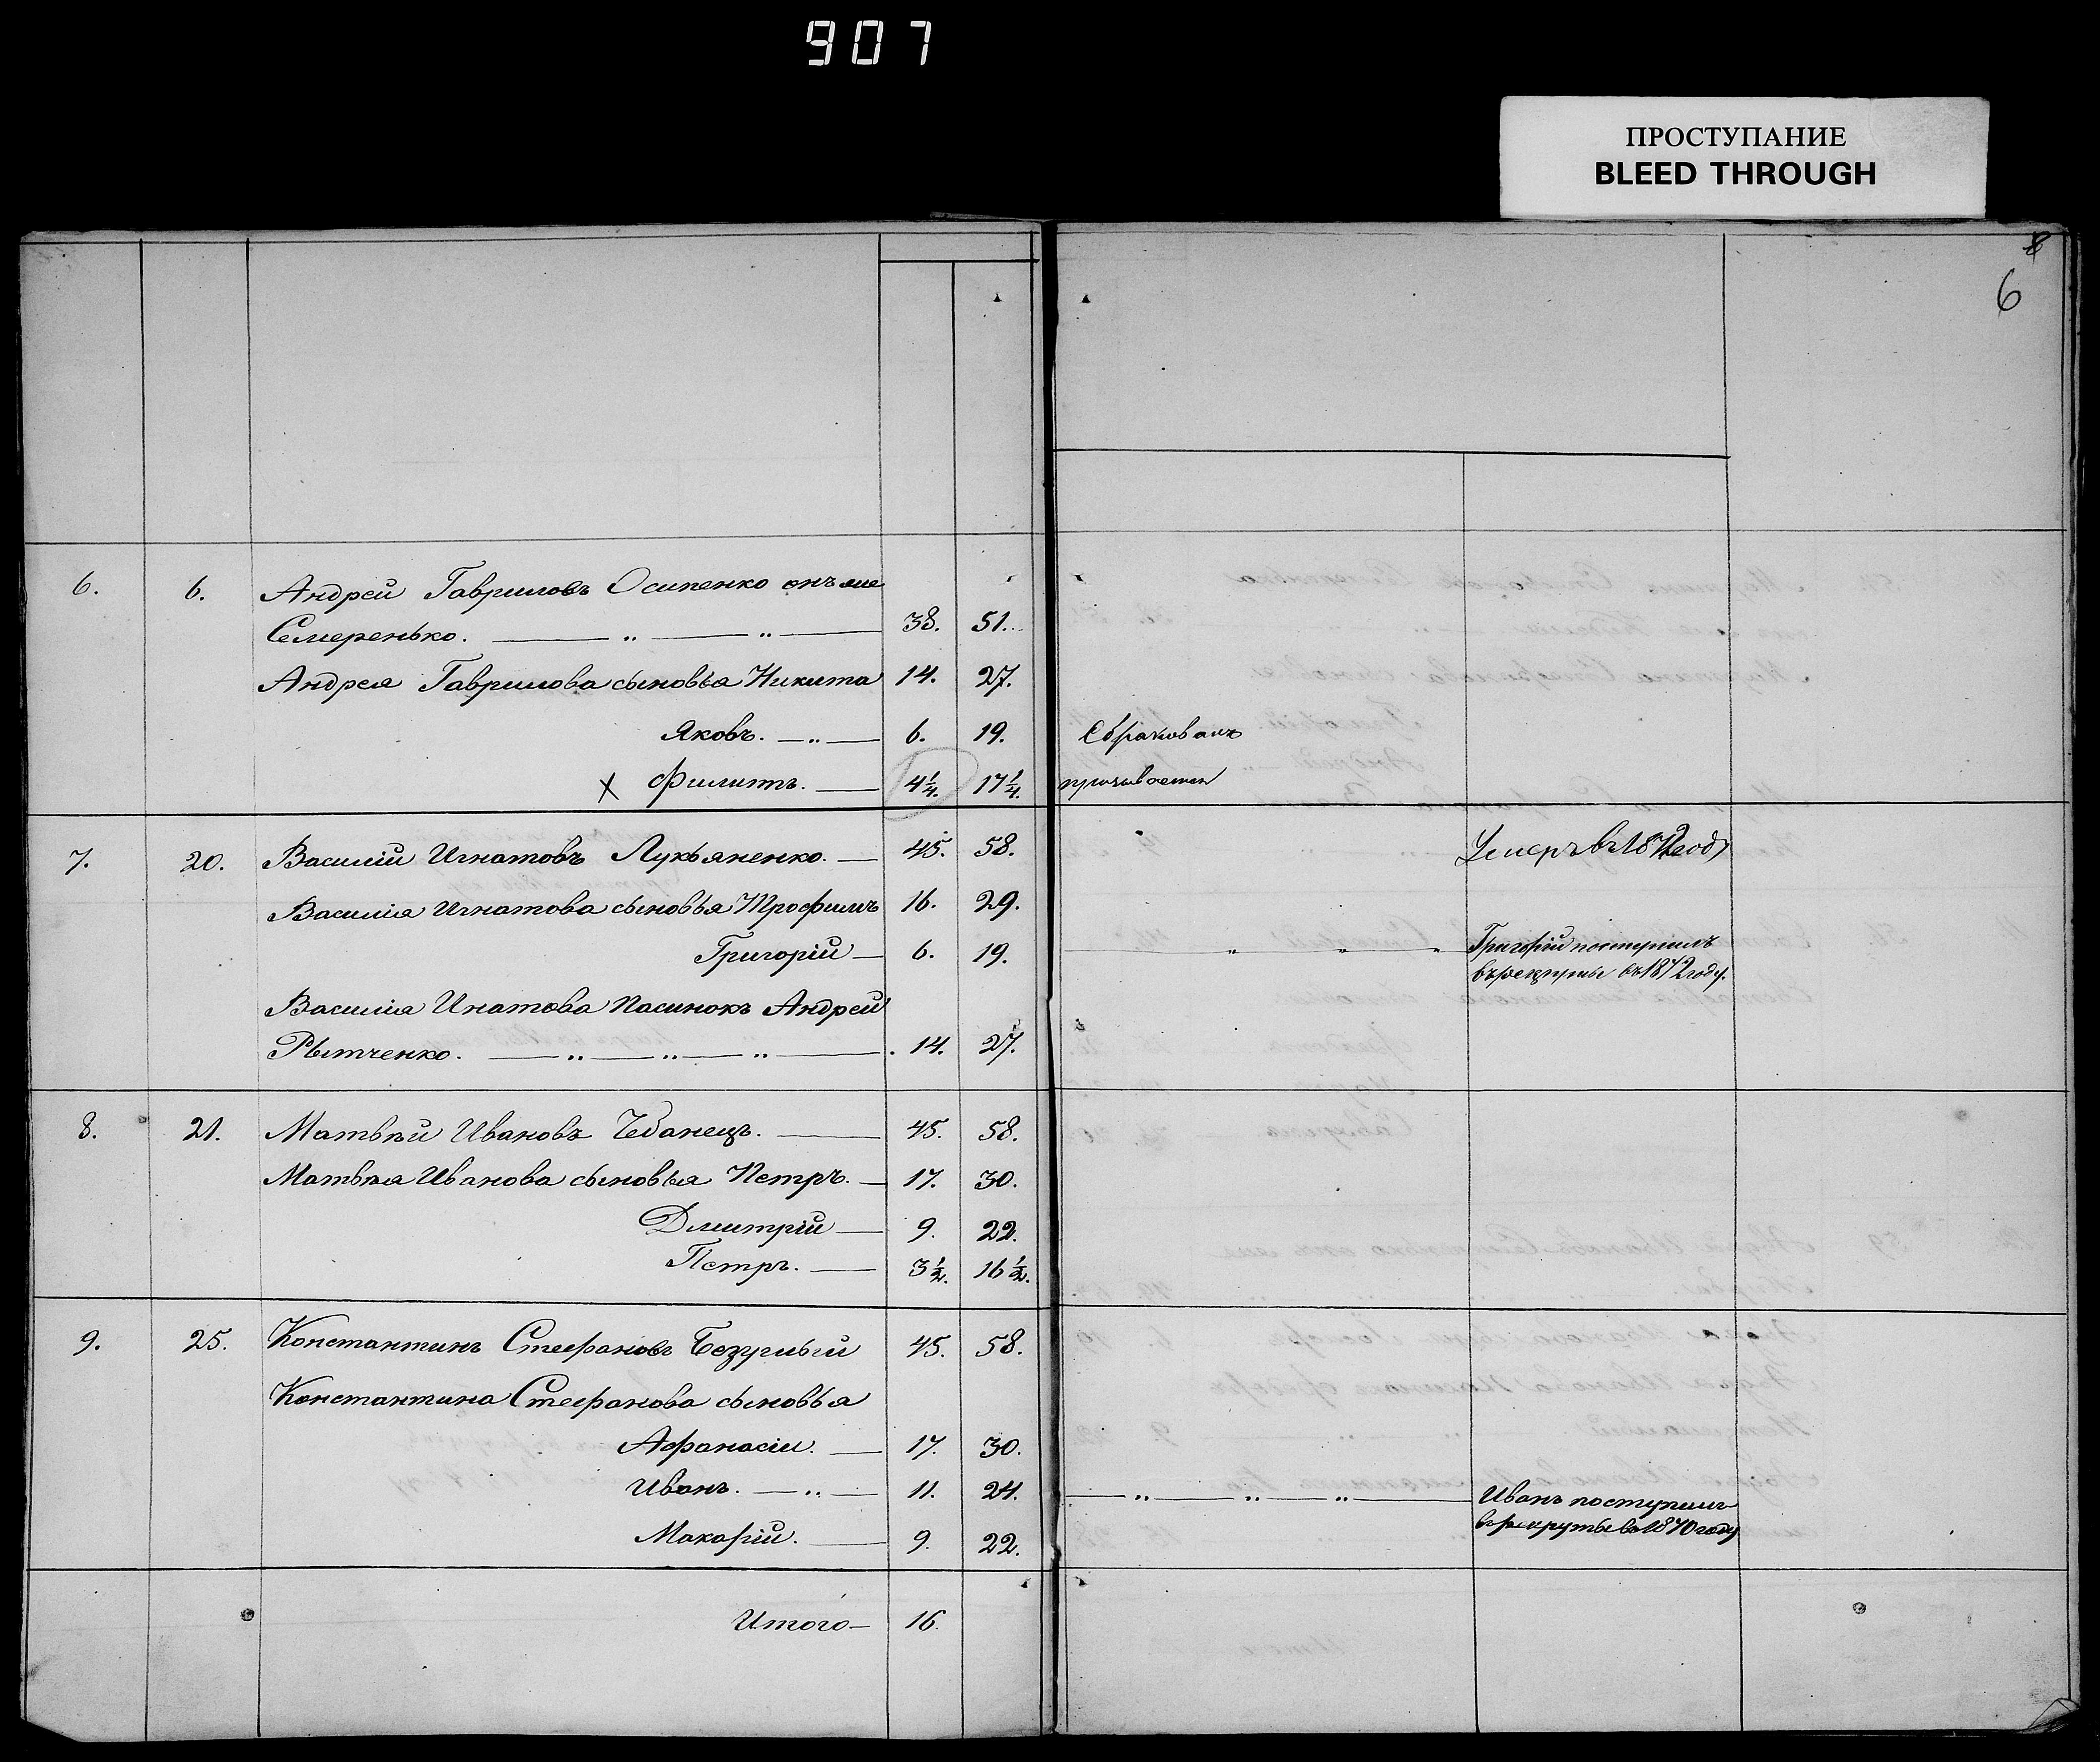 907
ПРОСТУПАНИЕ
BLEED THROUGH
8
6
6. 6. Андрей Гавриловъ Осипенко онъ же
Семеренько. — „ — „ — 38. 51.
Андрея Гаврилова сыновья Никита 14. 27.
Яковъ. — „ — 6. 19. Обракованъ
X Филиппъ. — 4¼. 17¼.
7. 20. Василій Игнатовъ Лукьяненко. — 45. 58. Умеръ въ 1872 году
Василія Игнатова сыновья Трофимъ 16. 29.
Григорій — 6. 19. — „ — „ — „ Григорій поступилъ
въ рекруты въ 1872 году.
Василія Инатова пасинокъ Андрей
Рытченко. — „ — „ — „ — 14. 27.
8. 21. Матвѣй Ивановъ Чебанецъ. — 45. 58.
Матвѣя Иванова сыновья Петръ. — 17. 30.
Дмитрій — 9. 22.
Петръ. — 3½. 16½.
9. 25. Константинъ Стефановъ Безуглый 45. 58.
Константина Стефанова сыновья
Афанасій. — 17. 30.
Иванъ. — „ — 11. 24. — „ — „ — „ — Иванъ поступилъ
въ рекруты въ 1870 году
Макарій. — 9. 22.
Итого — 16.